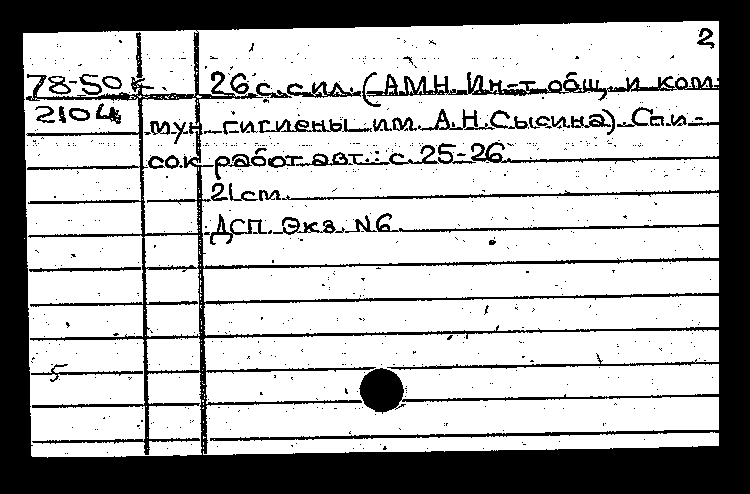 2
78-50 26 с. с ил. (АМН. Ин-т общ. и ком-
2104 мун. гигиены им. А.Н.Сысина). Спи-
сок работ авт.: с. 25-26.
21 cm.
ДСП. Экз. N6.
5